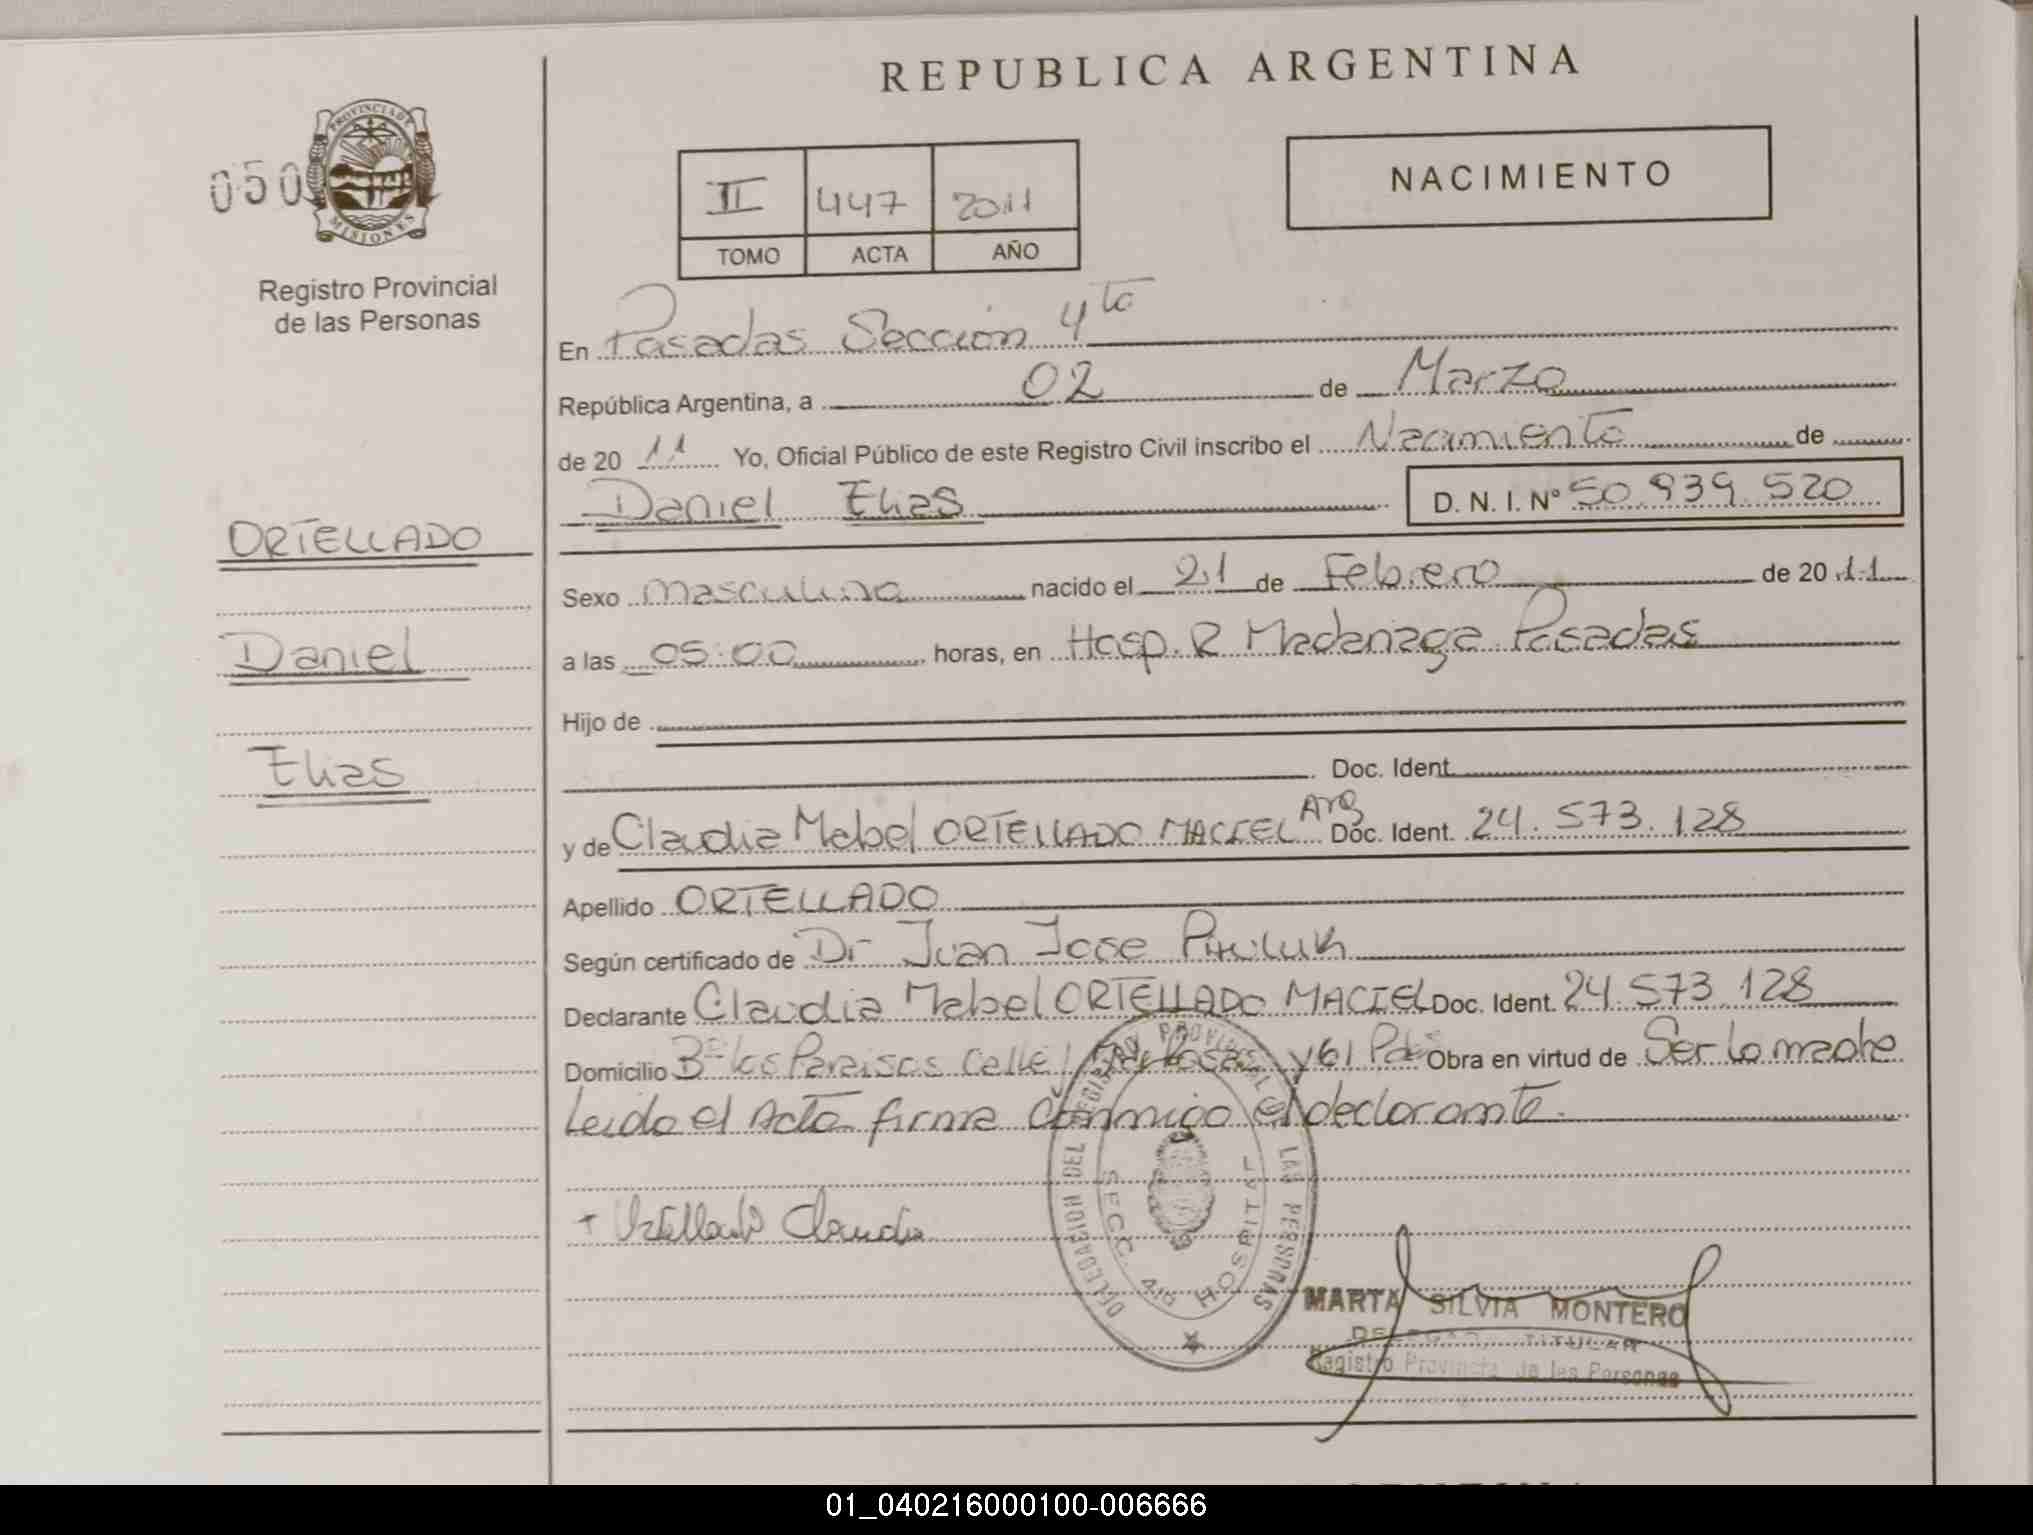 REPUBLICA ARGENTINA
PROVINCIA DE
MISIONES
050
Registro Provincial
de las Personas
II 447 2011
TOMO ACTA AÑO
NACIMIENTO
En Posadas Sección 4ta
República Argentina, a 02 de Marzo
de 2011 Yo, Oficial Público de este Registro Civil inscribo el Nacimiento de
Daniel Elias D. N. I. Nº 50.939.520
ORTELLADO
Daniel
Elias
Sexo masculino nacido el 21 de Febrero de 2011
a las 05:00 horas, en Hosp. R Madariaga Posadas
Hijo de
Doc. Ident.
y de Claudia Mabel ORTELLADO MACIEL Arg Doc. Ident. 24.573.128
Apellido ORTELLADO
Según certificado de Dr Juan Jose
Declarante Claudia Mabel ORTELLADO MACIEL Doc. Ident. 24.573.128
Domicilio Bº los Paraisos Calle y 61 Pdas Obra en virtud de Ser la madre
Leida el Acta firma conmigo el declarante.
+ Ortellado Claudia
DELEGACION DEL REGISTRO PROVINCIAL DE LAS PERSONAS
SECC. 4ta HOSPITAL
MARTA SILVIA MONTERO
TITULAR
Registro Provincial de las Personas
01_040216000100-006666